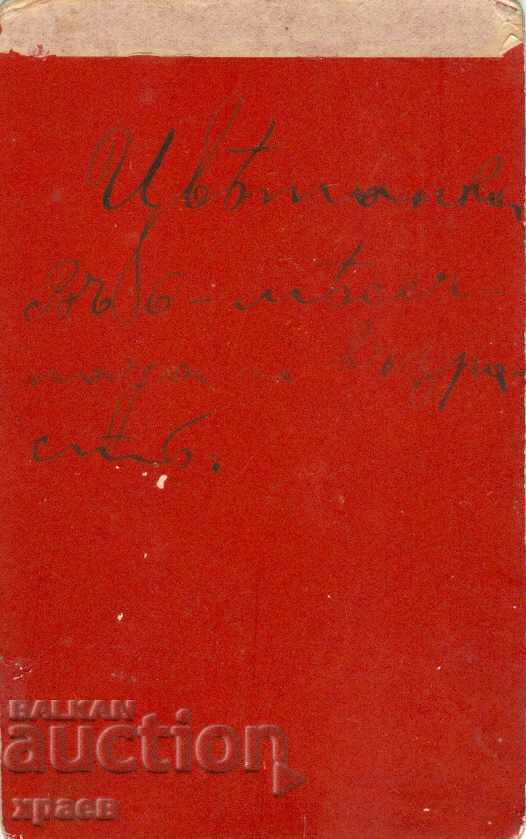 Цвѣтанка,
въ 6-мѣсеч-
ната и възра-
сть.
BALKAN
auction
храев